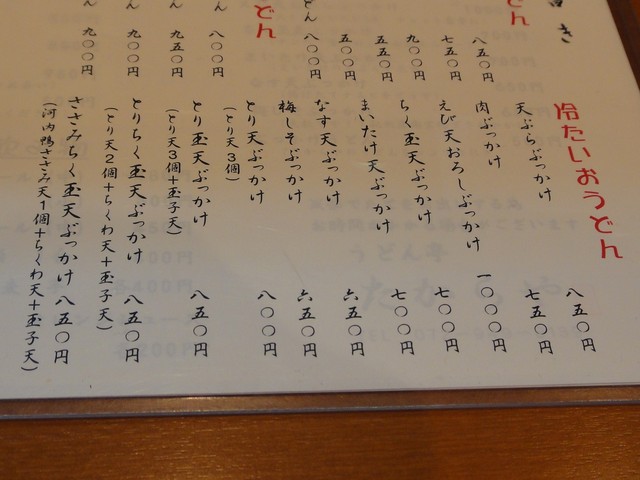 き
ん
八五〇円
七五〇円
九〇〇円
五五〇円
五〇〇円
どん 八〇〇円
うどん
ん 八〇〇円
ん 九五〇円
ん 九〇〇円
ん 九〇〇円
冷たいおうどん
天ぷらぶっかけ 八五〇円
肉ぶっかけ 七五〇円
えび天おろしぶっかけ 一〇〇〇円
ちく玉天ぶっかけ 七〇〇円
まいたけ天ぶっかけ 七〇〇円
なす天ぶっかけ 六五〇円
梅しそぶっかけ 六五〇円
とり天ぶっかけ 八〇〇円
(とり天3個)
とり玉天ぶっかけ 八五〇円
(とり天3個+玉子天)
とりちく玉天ぶっかけ 八五〇円
(とり天2個+ちくわ天+玉子天)
ささみちく玉天ぶっかけ 八五〇円
(河内鴨ささみ天1個+ちくわ天+玉子天)